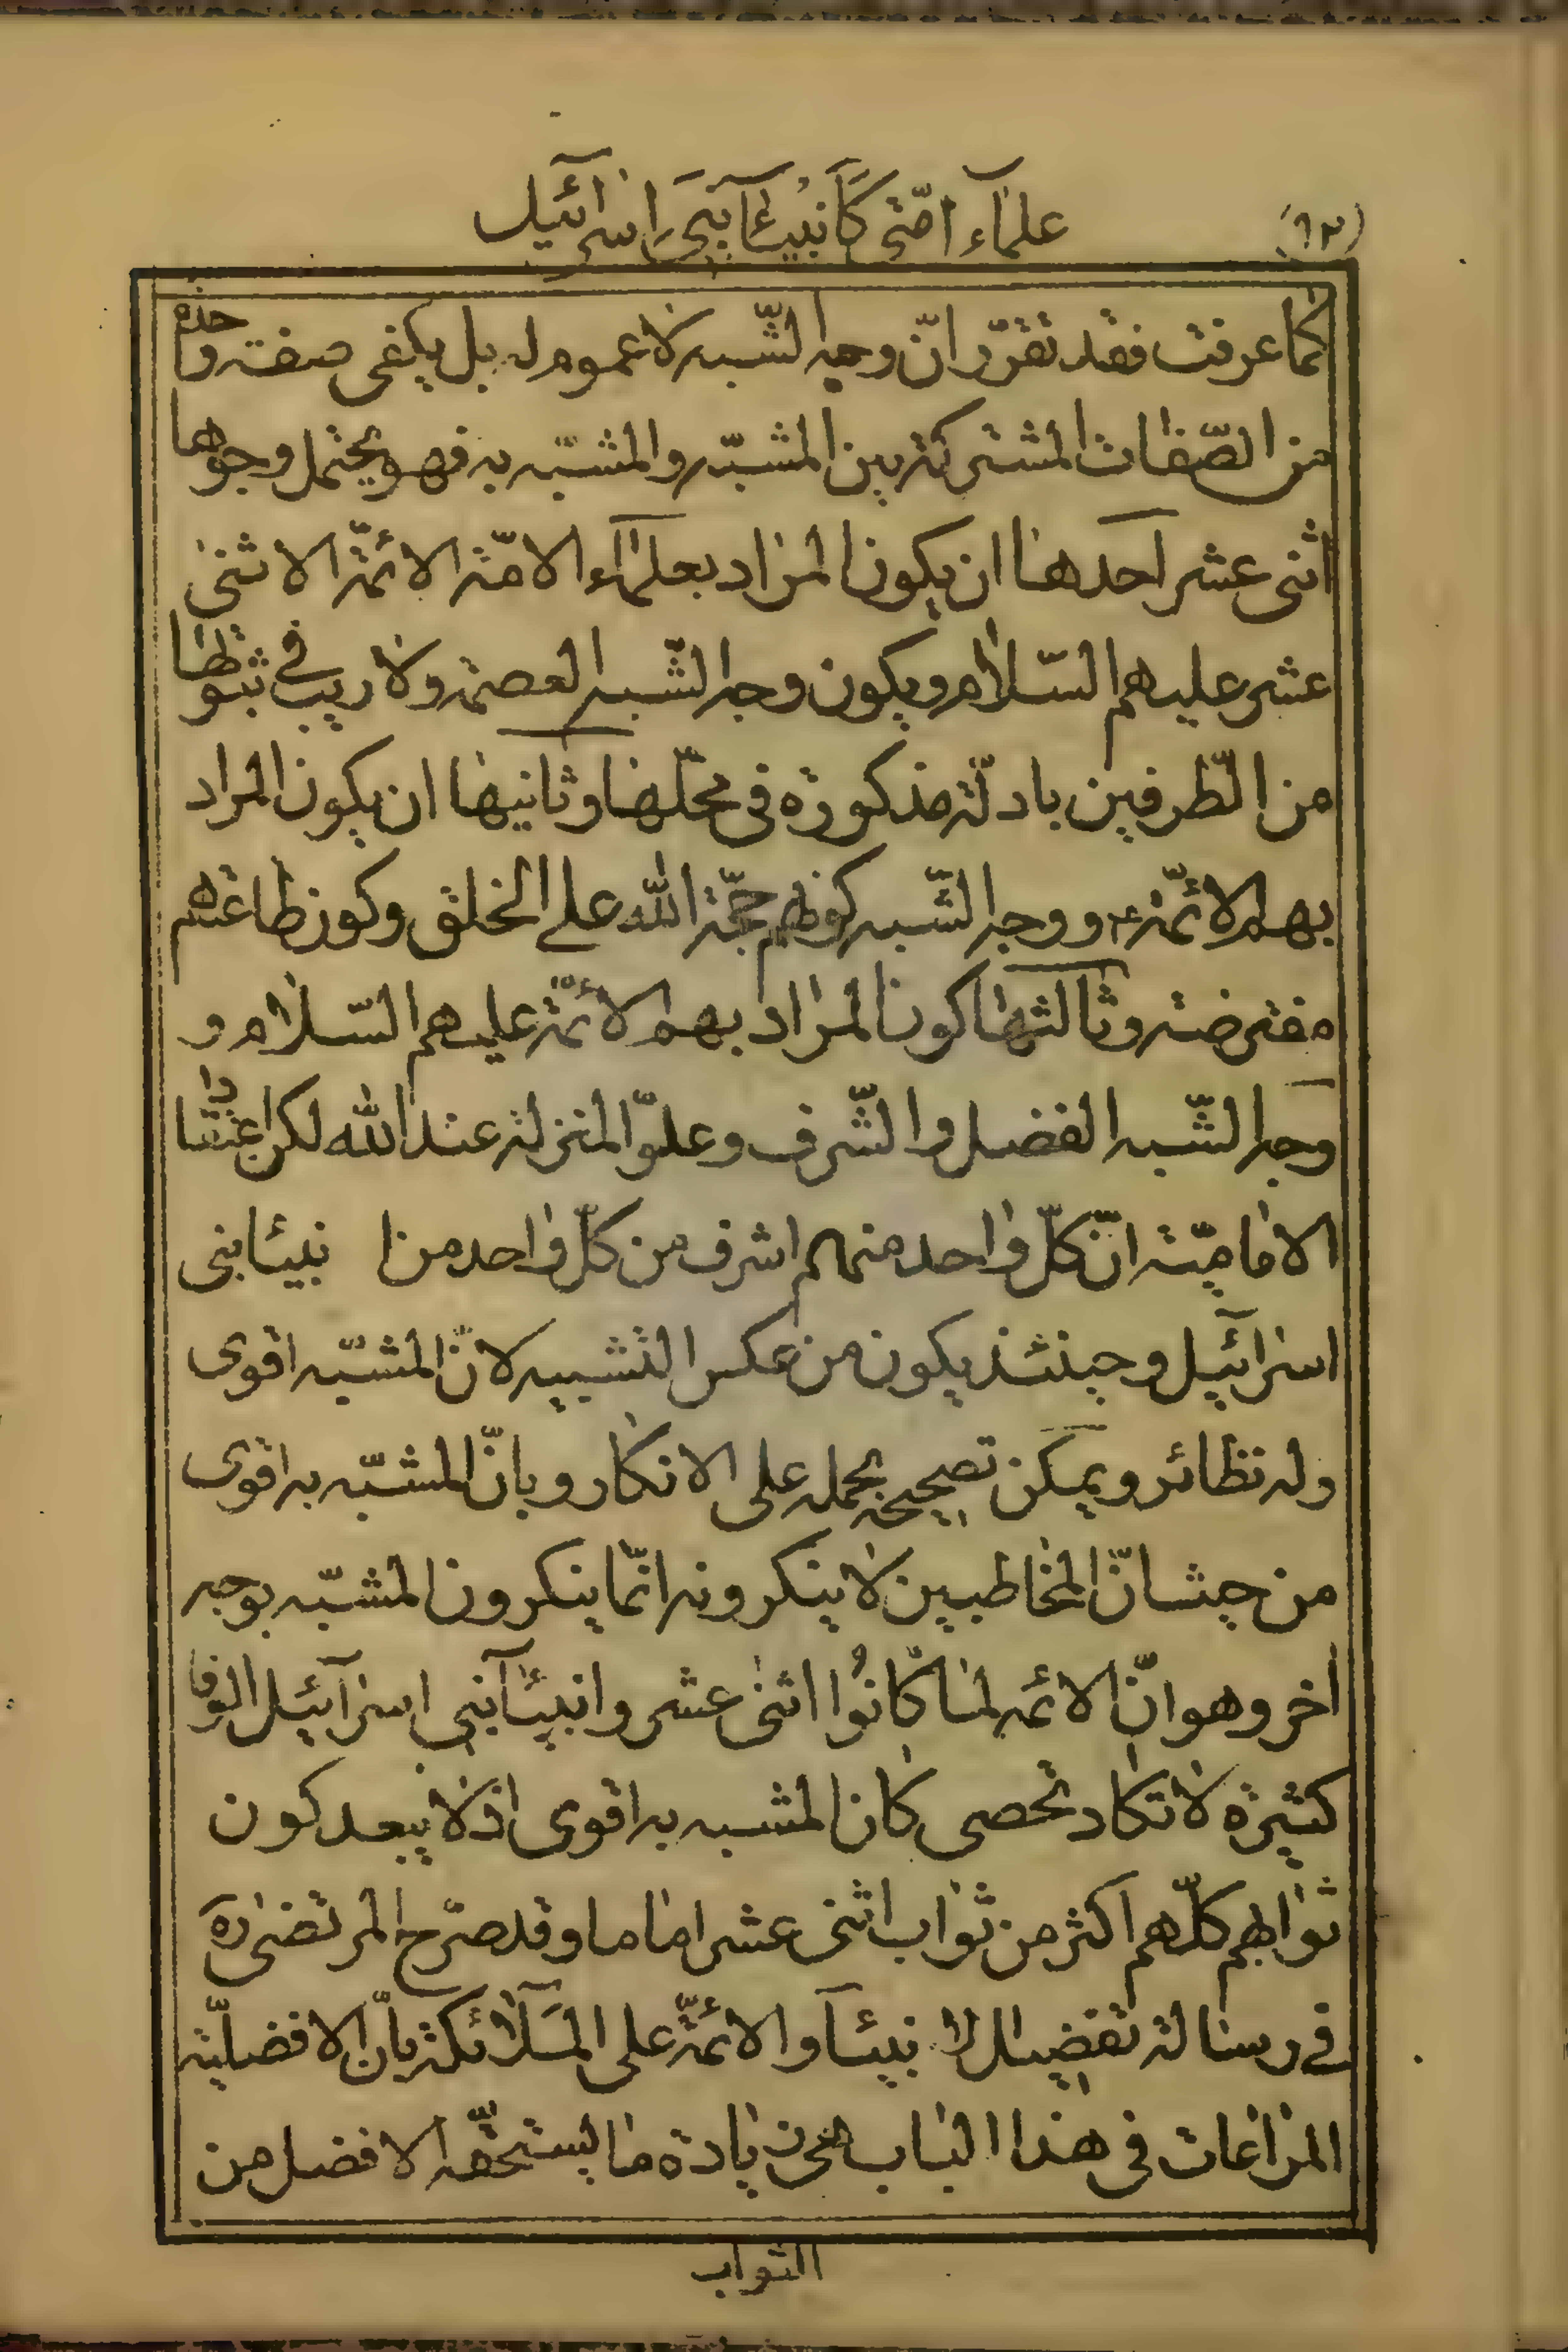 (٩٢) علماء امّتى كانبيآء بنى اسرآئيل
كما عرفت فقد تقرّر انّ وجه الشّبه لا عموم له بل يكفى صفة واحدة
من الصّفات المشتركة بين المشبّه والمشبّه به فهو يحتمل وجوها
اثنى عشر احدها ان يكون المراد بعلمآء الامّة الائمّة الاثنى
عشر عليهم السّلام ويكون وجه الشّبه العصمة ولا ريب فى ثبوتها
من الطّرفين بادلّة مذكورة فى محلّها وثانيها ان يكون المراد
بهم الائمّة ع ووجه الشّبه كونهم حجّة الله على الخلق وكون طاعتهم
مفترضة وثالثها كون المراد بهم الائمّة عليهم السّلام و
وجه الشّبه الفضل والشّرف وعلوّ المنزلة عند الله لكن اعتقادنا
الاماميّة انّ كلّ واحد منهم اشرف من كلّ واحد من انبيآء بنى
اسرآئيل وحينئذ يكون من عكس التشبيه لانّ المشبّه اقوى
وله نظائر ويمكن تصحيحه بحمله على الانكار وبانّ المشبّه به اقوى
من حيث انّ المخاطبين لا ينكرونه انّما ينكرون المشبّه بوجه
اخر وهو انّ الائمه لمّا كانوا اثنى عشر وانبيآء بنى اسرآئيل الوفا
كثيرة لا تكاد تحصى كان المشبه به اقوى اذ لا يبعد كون
ثوابهم كلّهم اكثر من ثواب اثنى عشر اماما وقد صرّح المرتضى ره
فى رسالة تفضيل الانبيآء والائمّة على الملآئكة بانّ الافضليّة
المراعات فى هذا الباب هى زيادة ما يستحقّه الافضل من
الثواب